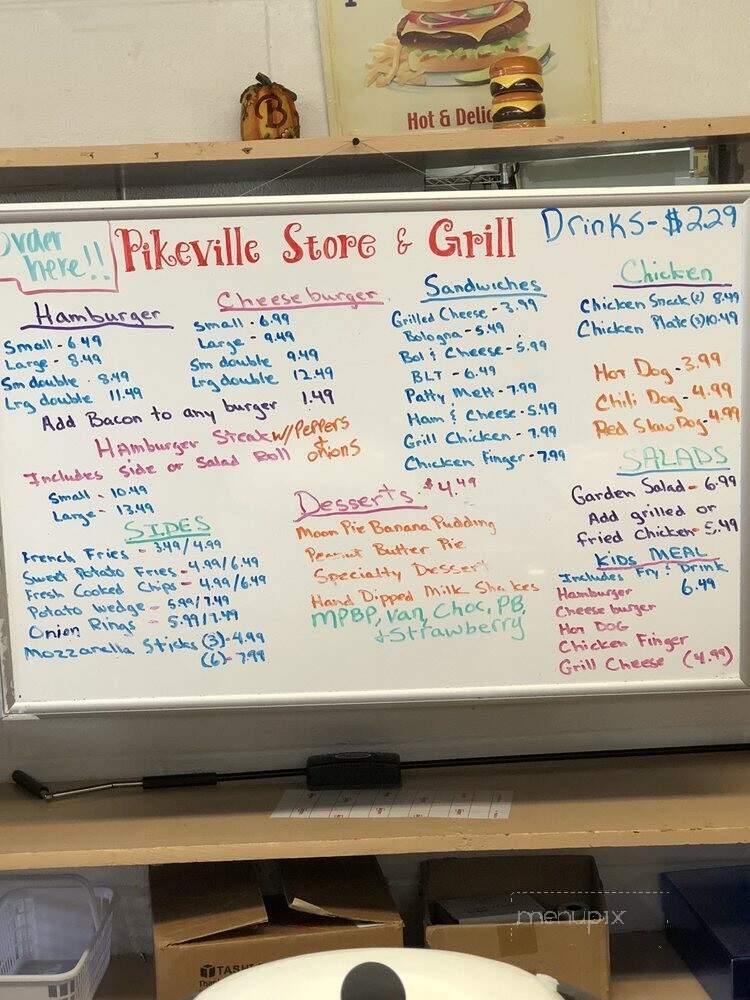 B
Hot & Delic
Order here!!
Pikeville Store & Grill
Drinks-$2.29
Hamburger
Small - 6.49
Large - 8.49
Sm double - 8.49
Lrg double 11.49
Cheeseburger
Small - 6.99
Large - 9.49
Sm double 9.49
Lrg double 12.49
Add Bacon to any burger 1.49
Hamburger Steak w/Peppers + onions
Includes side or Salad Roll
Small - 10.49
Large - 13.49
SIDES
French Fries - 3.49/4.99
Sweet Potato Fries - 4.99/6.49
Fresh Cooked Chips - 4.99/6.49
Potato Wedge - 5.99/7.49
Onion Rings - 5.99/7.49
Mozzarella Sticks (3)-4.99
(6)- 7.99
Sandwiches
Grilled Cheese - 3.99
Bologna - 5.49
Bol & Cheese - 5.99
BLT - 6.49
Patty Melt - 7.99
Ham & Cheese - 5.49
Grill Chicken - 7.99
Chicken Finger - 7.99
Desserts $4.49
Moon Pie Banana Pudding
Peanut Butter Pie
Specialty Dessert
Hand Dipped Milk Shakes
MPBP, Van, Choc, PB,
+ Strawberry
Chicken
Chicken Snack (2) 8.49
Chicken Plate (3) 10.49
Hot Dog - 3.99
Chili Dog - 4.99
Red Slaw Dog - 4.99
SALADS
Garden Salad - 6.99
Add grilled or
fried Chicken - 5.49
KIDS MEAL
Includes Fry & Drink
6.49
Hamburger
Cheeseburger
Hot DOG
Chicken Finger
Grill Cheese (4.99)
menupix
TASH